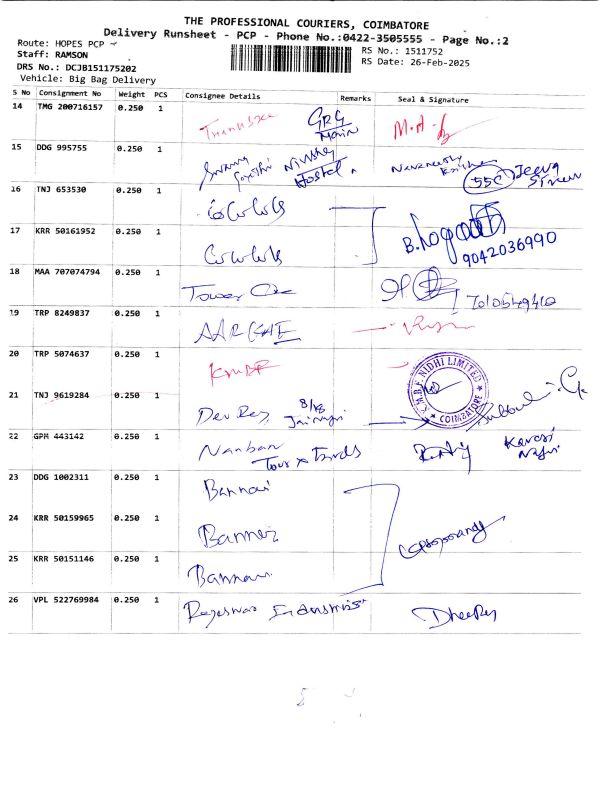 THE PROFESSIONAL COURIERS, COIMBATORE
Delivery Runsheet - PCP - Phone No.:0422-3505555 - Page No.:2
Route: HOPES PCP
Staff: RAMSON
DRS No.: DCJB151175202
Vehicle: Big Bag Delivery
RS No.: 1511752
RS Date: 26-Feb-2025
S No Consignment No Weight PCS Consignee Details Remarks Seal & Signature
14 TMG 200716157 0.250 1 GRG Main
15 DDG 995755 0.250 1 Swamy Gayathri Hostel 55C Jeeva Street
16 TNJ 653530 0.250 1
17 KRR 50161952 0.250 1 9042036990
18 MAA 707074794 0.250 1 Tower
19 TRP 8249837 0.250 1
20 TRP 5074637 0.250 1 KMBF K.M.B.F. NIDHI LIMITED COIMBATORE
21 TNJ 9619284 0.250 1 Dev Raj
22 GPM 443142 0.250 1 Nanban Tour
23 DDG 1002311 0.250 1 Bannari
24 KRR 50159965 0.250 1 Bannari
25 KRR 50151146 0.250 1 Bannari
26 VPL 522769984 0.250 1 Rajeswari Industries